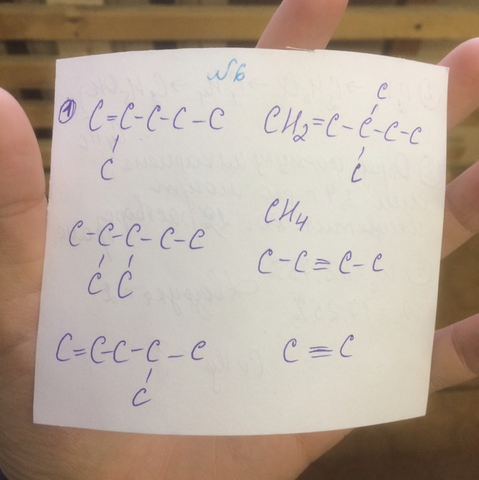 №6
1) C=C-C-C-C
C
C-C-C-C-C
C C
C=C-C-C-C
C
C
CH₂=C-C-C-C
C
CH₄
C-C≡C-C
C≡C